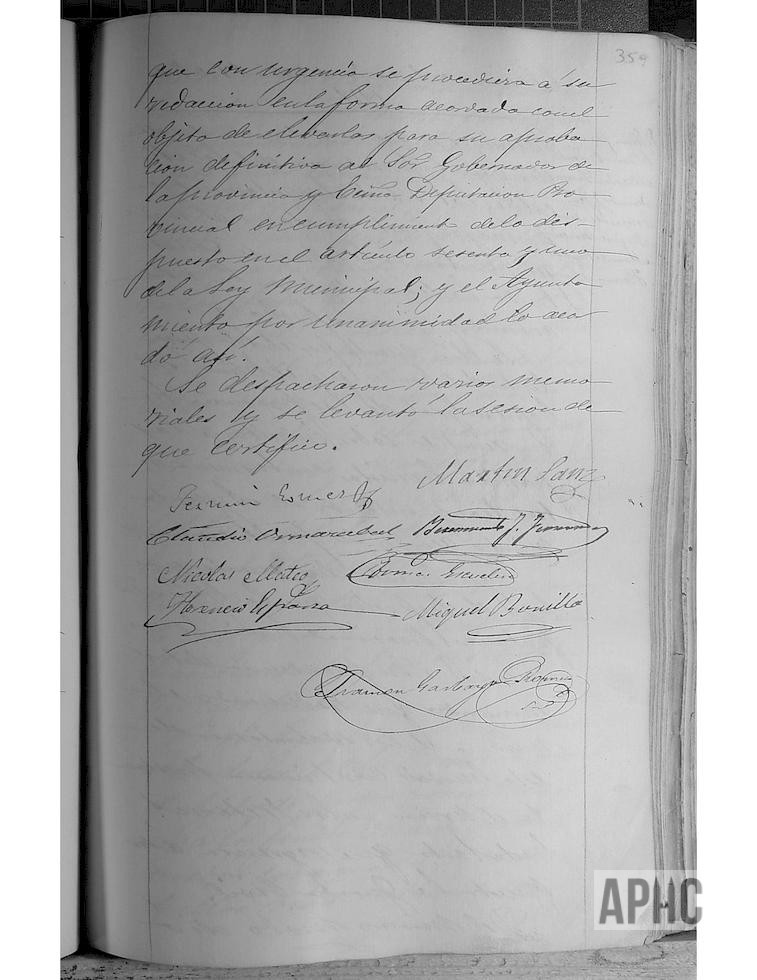 359
que con urgencia se procediera a su
redaccion en la forma acordada con el
objeto de elevarlas para su aproba
cion definitiva al Sor Gobernador de
la provincia y Exma Diputacion Pro
vincial en cumplimiento de lo dis-
puesto en el artículo sesenta y uno
de la Ley Municipal; y el Ayunta
miento por unanimidad lo acor
dó así.
Se despacharon varios memo
riales y se levantó la sesion de
que certifico.
Fermin Martin Sanz
Claudio J.
Nicolas Mateo
Florencio España Miguel Bonilla
Ramon
APHC